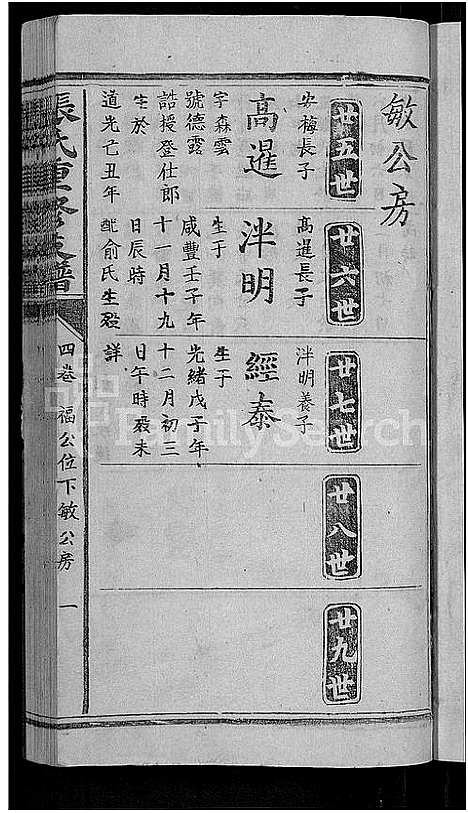 敏公房
廿五世
安梅長子
高暹
字森雲
號德露
誥授登仕郎
生於
道光己丑年
廿六世
高暹長子
泮明
生于
咸豐壬子年
十一月十九
日辰時
配俞氏生歿
詳
廿七世
泮明養子
經泰
生于
光緒戊子年
十二月初三
日午時歿未
廿八世
廿九世
張氏重修支譜
四卷 福公位下敏公房 一
FamilySearch